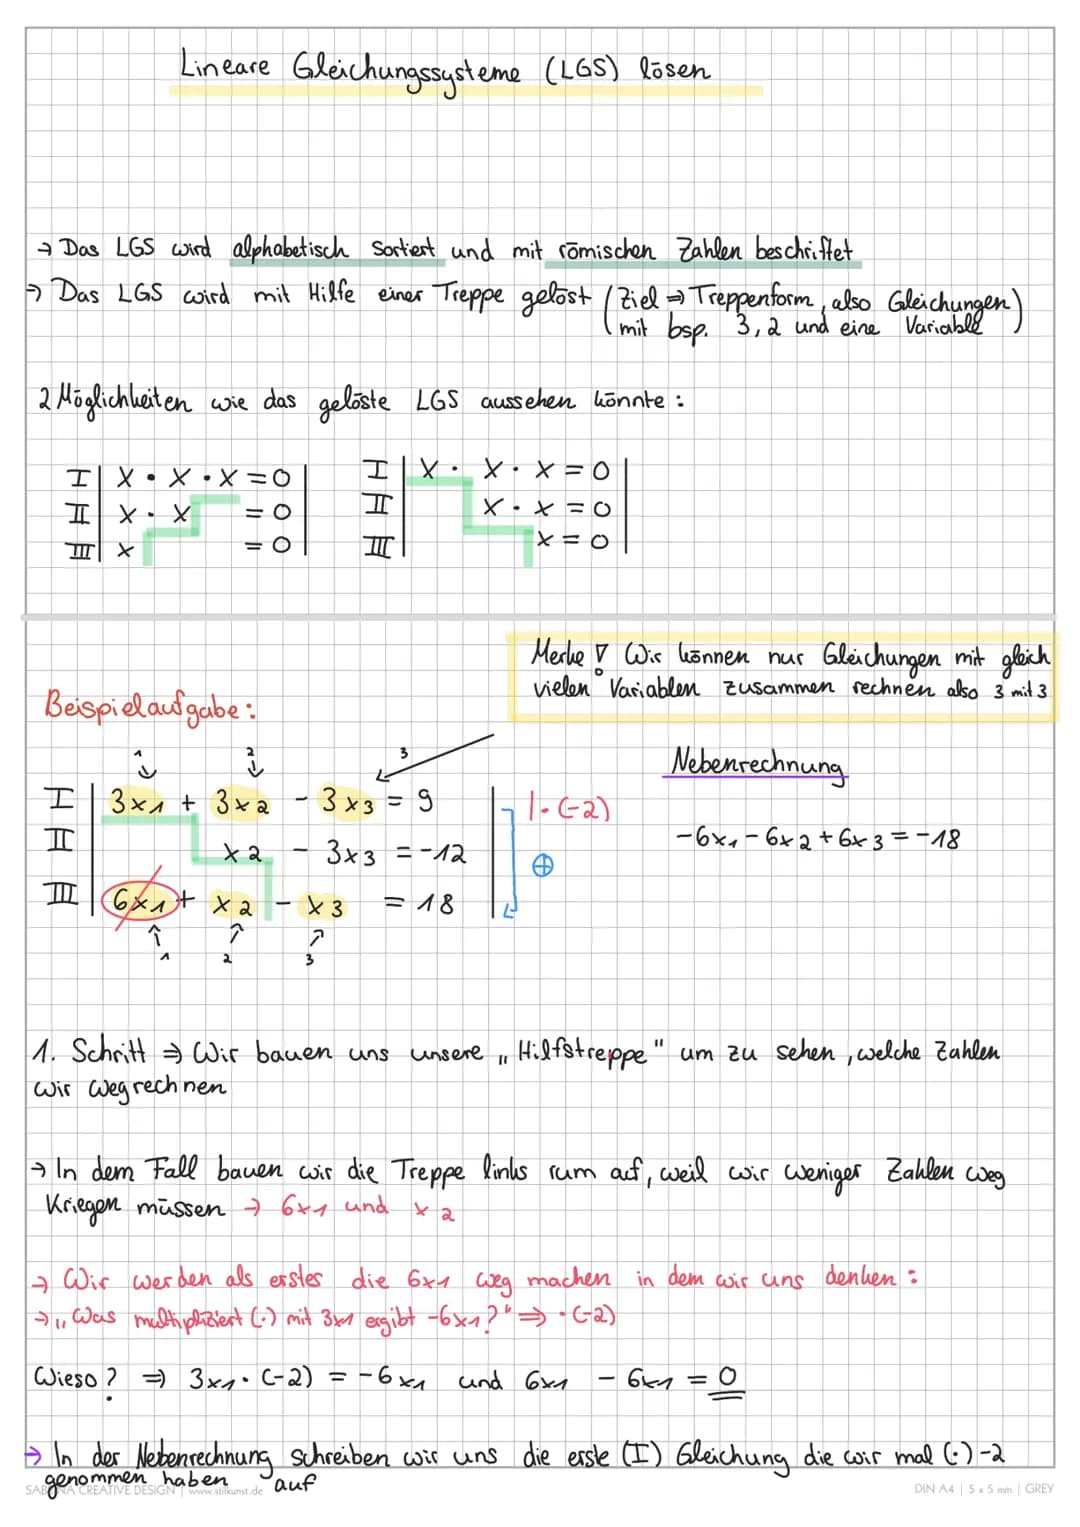 Lineare Gleichungssysteme (LGS) lösen
→ Das LGS wird alphabetisch sortiert und mit römischen Zahlen beschriftet
→ Das LGS wird mit Hilfe einer Treppe gelöst (Ziel ⇒ Treppenform, also Gleichungen
mit bsp. 3, 2 und eine Variable)
2 Möglichkeiten wie das gelöste LGS aussehen könnte:
I | X · X · X = 0 |
II | X · X = 0 |
III | X = 0 |
I | X · X · X = 0 |
II | X · X = 0 |
III | X = 0 |
Merke ! Wir können nur Gleichungen mit gleich
vielen Variablen zusammen rechnen also 3 mit 3
Beispielaufgabe:
Nebenrechnung
1 2 3
I | 3x1 + 3x2 - 3x3 = 9 | |·(-2)
-6x1 - 6x2 + 6x3 = -18
II | x2 - 3x3 = -12 | ⊕
III | 6x1 + x2 - x3 = 18 |
1 2 3
1. Schritt ⇒ Wir bauen uns unsere „Hilfstreppe" um zu sehen, welche Zahlen
wir wegrechnen
→ In dem Fall bauen wir die Treppe links rum auf, weil wir weniger Zahlen weg
Kriegen müssen → 6x1 und x2
→ Wir werden als erstes die 6x1 weg machen in dem wir uns denken:
→ „Was multipliziert (·) mit 3x1 ergibt -6x1?" ⇒ ·(-2)
Wieso? ⇒ 3x1 · (-2) = -6x1 und 6x1 - 6x1 = 0
→ In der Nebenrechnung schreiben wir uns die erste (I) Gleichung die wir mal (·) -2
genommen haben auf
SABINA CREATIVE DESIGN | www.stilkunst.de
DIN A4 | 5 x 5 mm | GREY